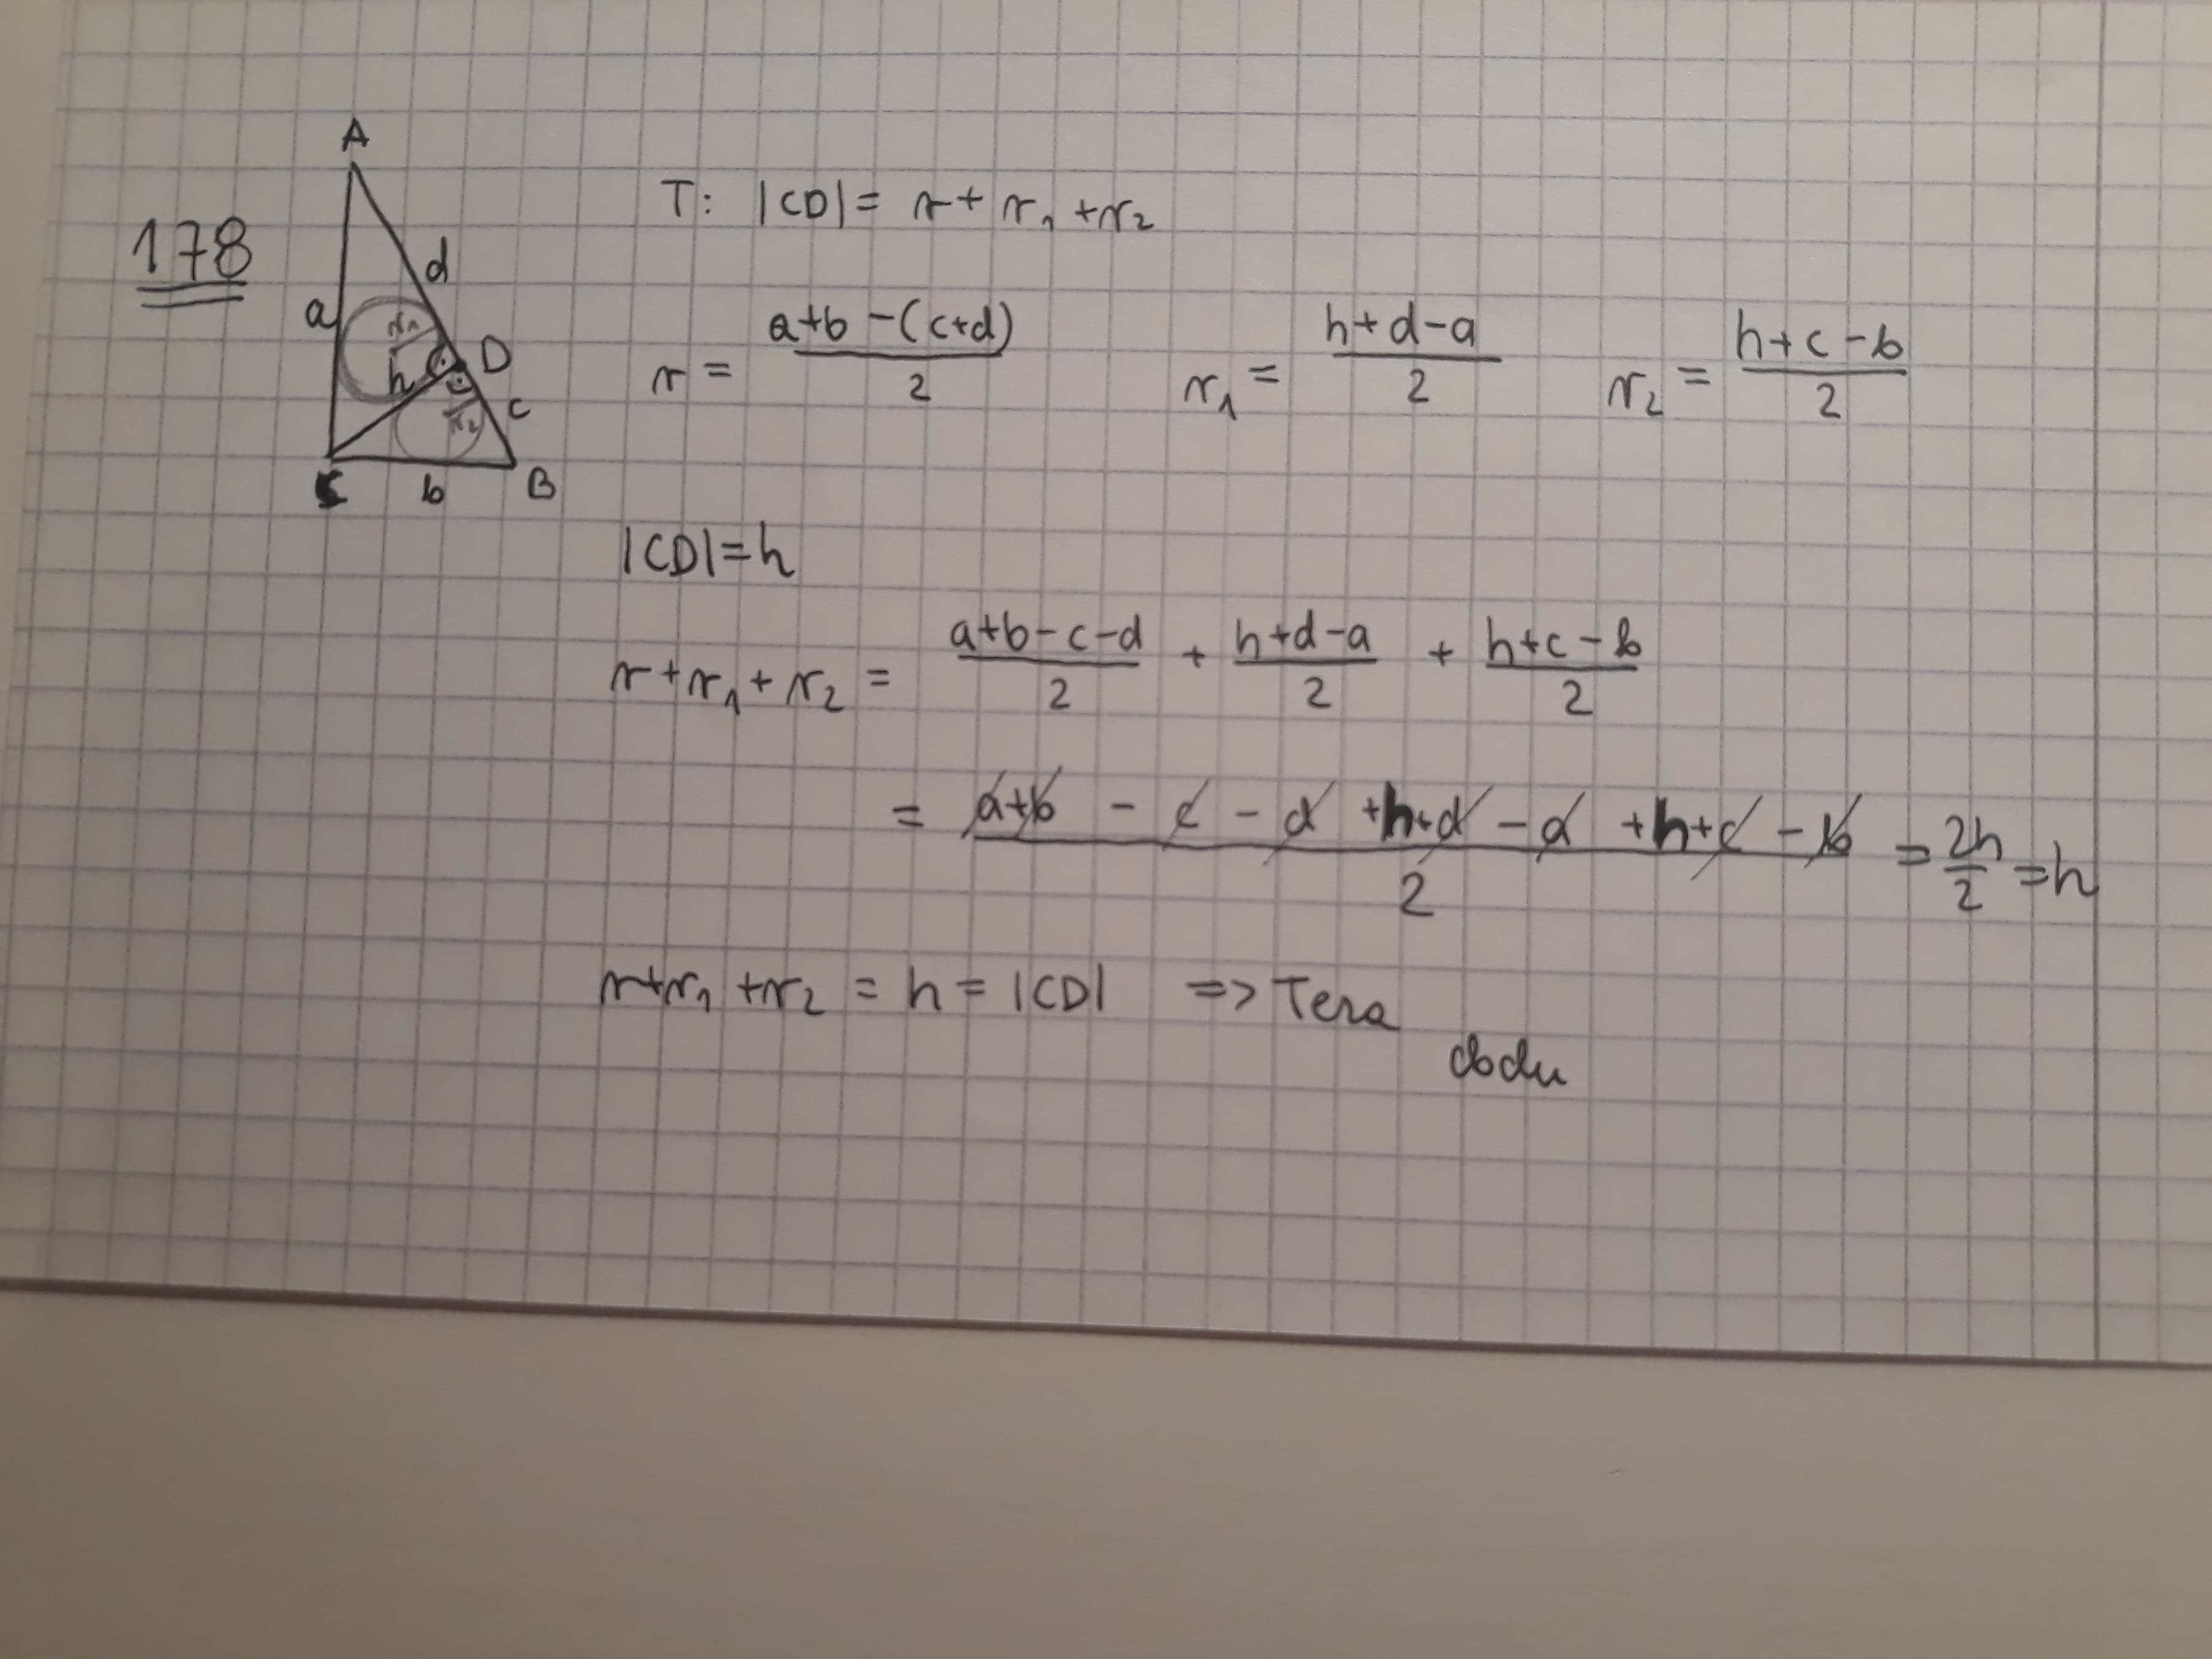 178
A
d
a
r₁
D
h
c
r₂
C
b
B
T: |CD| = r + r₁ + r₂
r = (a+b - (c+d))/2   r₁ = (h+d-a)/2   r₂ = (h+c-b)/2
|CD| = h
r + r₁ + r₂ = (a+b-c-d)/2 + (h+d-a)/2 + (h+c-b)/2
= (a+b - c - d + h+d - a + h+c - b)/2 = 2h/2 = h
r+r₁ + r₂ = h = |CD| => Teza